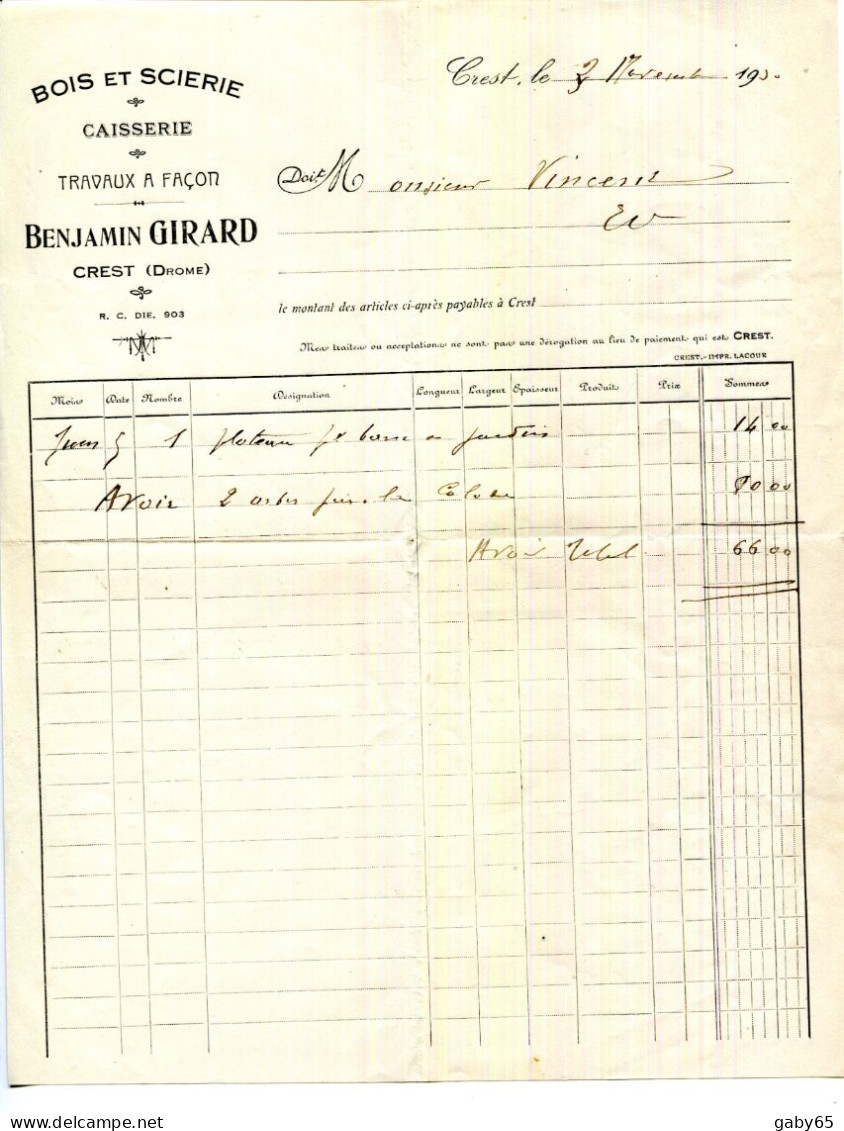 BOIS ET SCIERIE
CAISSERIE
TRAVAUX A FAÇON
BENJAMIN GIRARD
CREST (DROME)
R. C. DIE. 903
Crest, le 2 Novembre 193
Doit M onsieur Vincent
EV
le montant des articles ci-après payables à Crest
Mes traites ou acceptations ne sont pas une dérogation au lieu de paiement qui est CREST.
CREST.-IMPR. LACOUR
Mois Date Nombre Désignation Longueur Largeur Epaisseur Produits Prix Sommes
Juin 5 1 plateau pr banc a jardin 14 00
Avoir 2 arbres 80 00
Avoir Total 66 00
gaby65